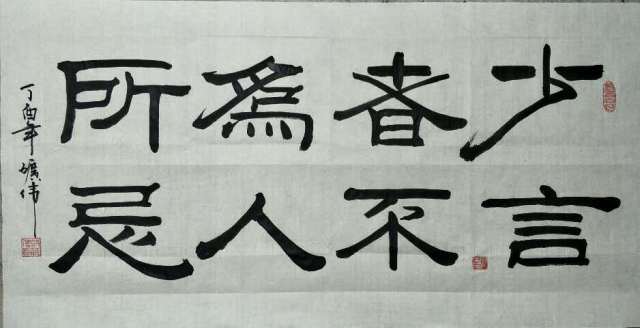 少言
者不
為人
所忌
丁酉年 曠伟